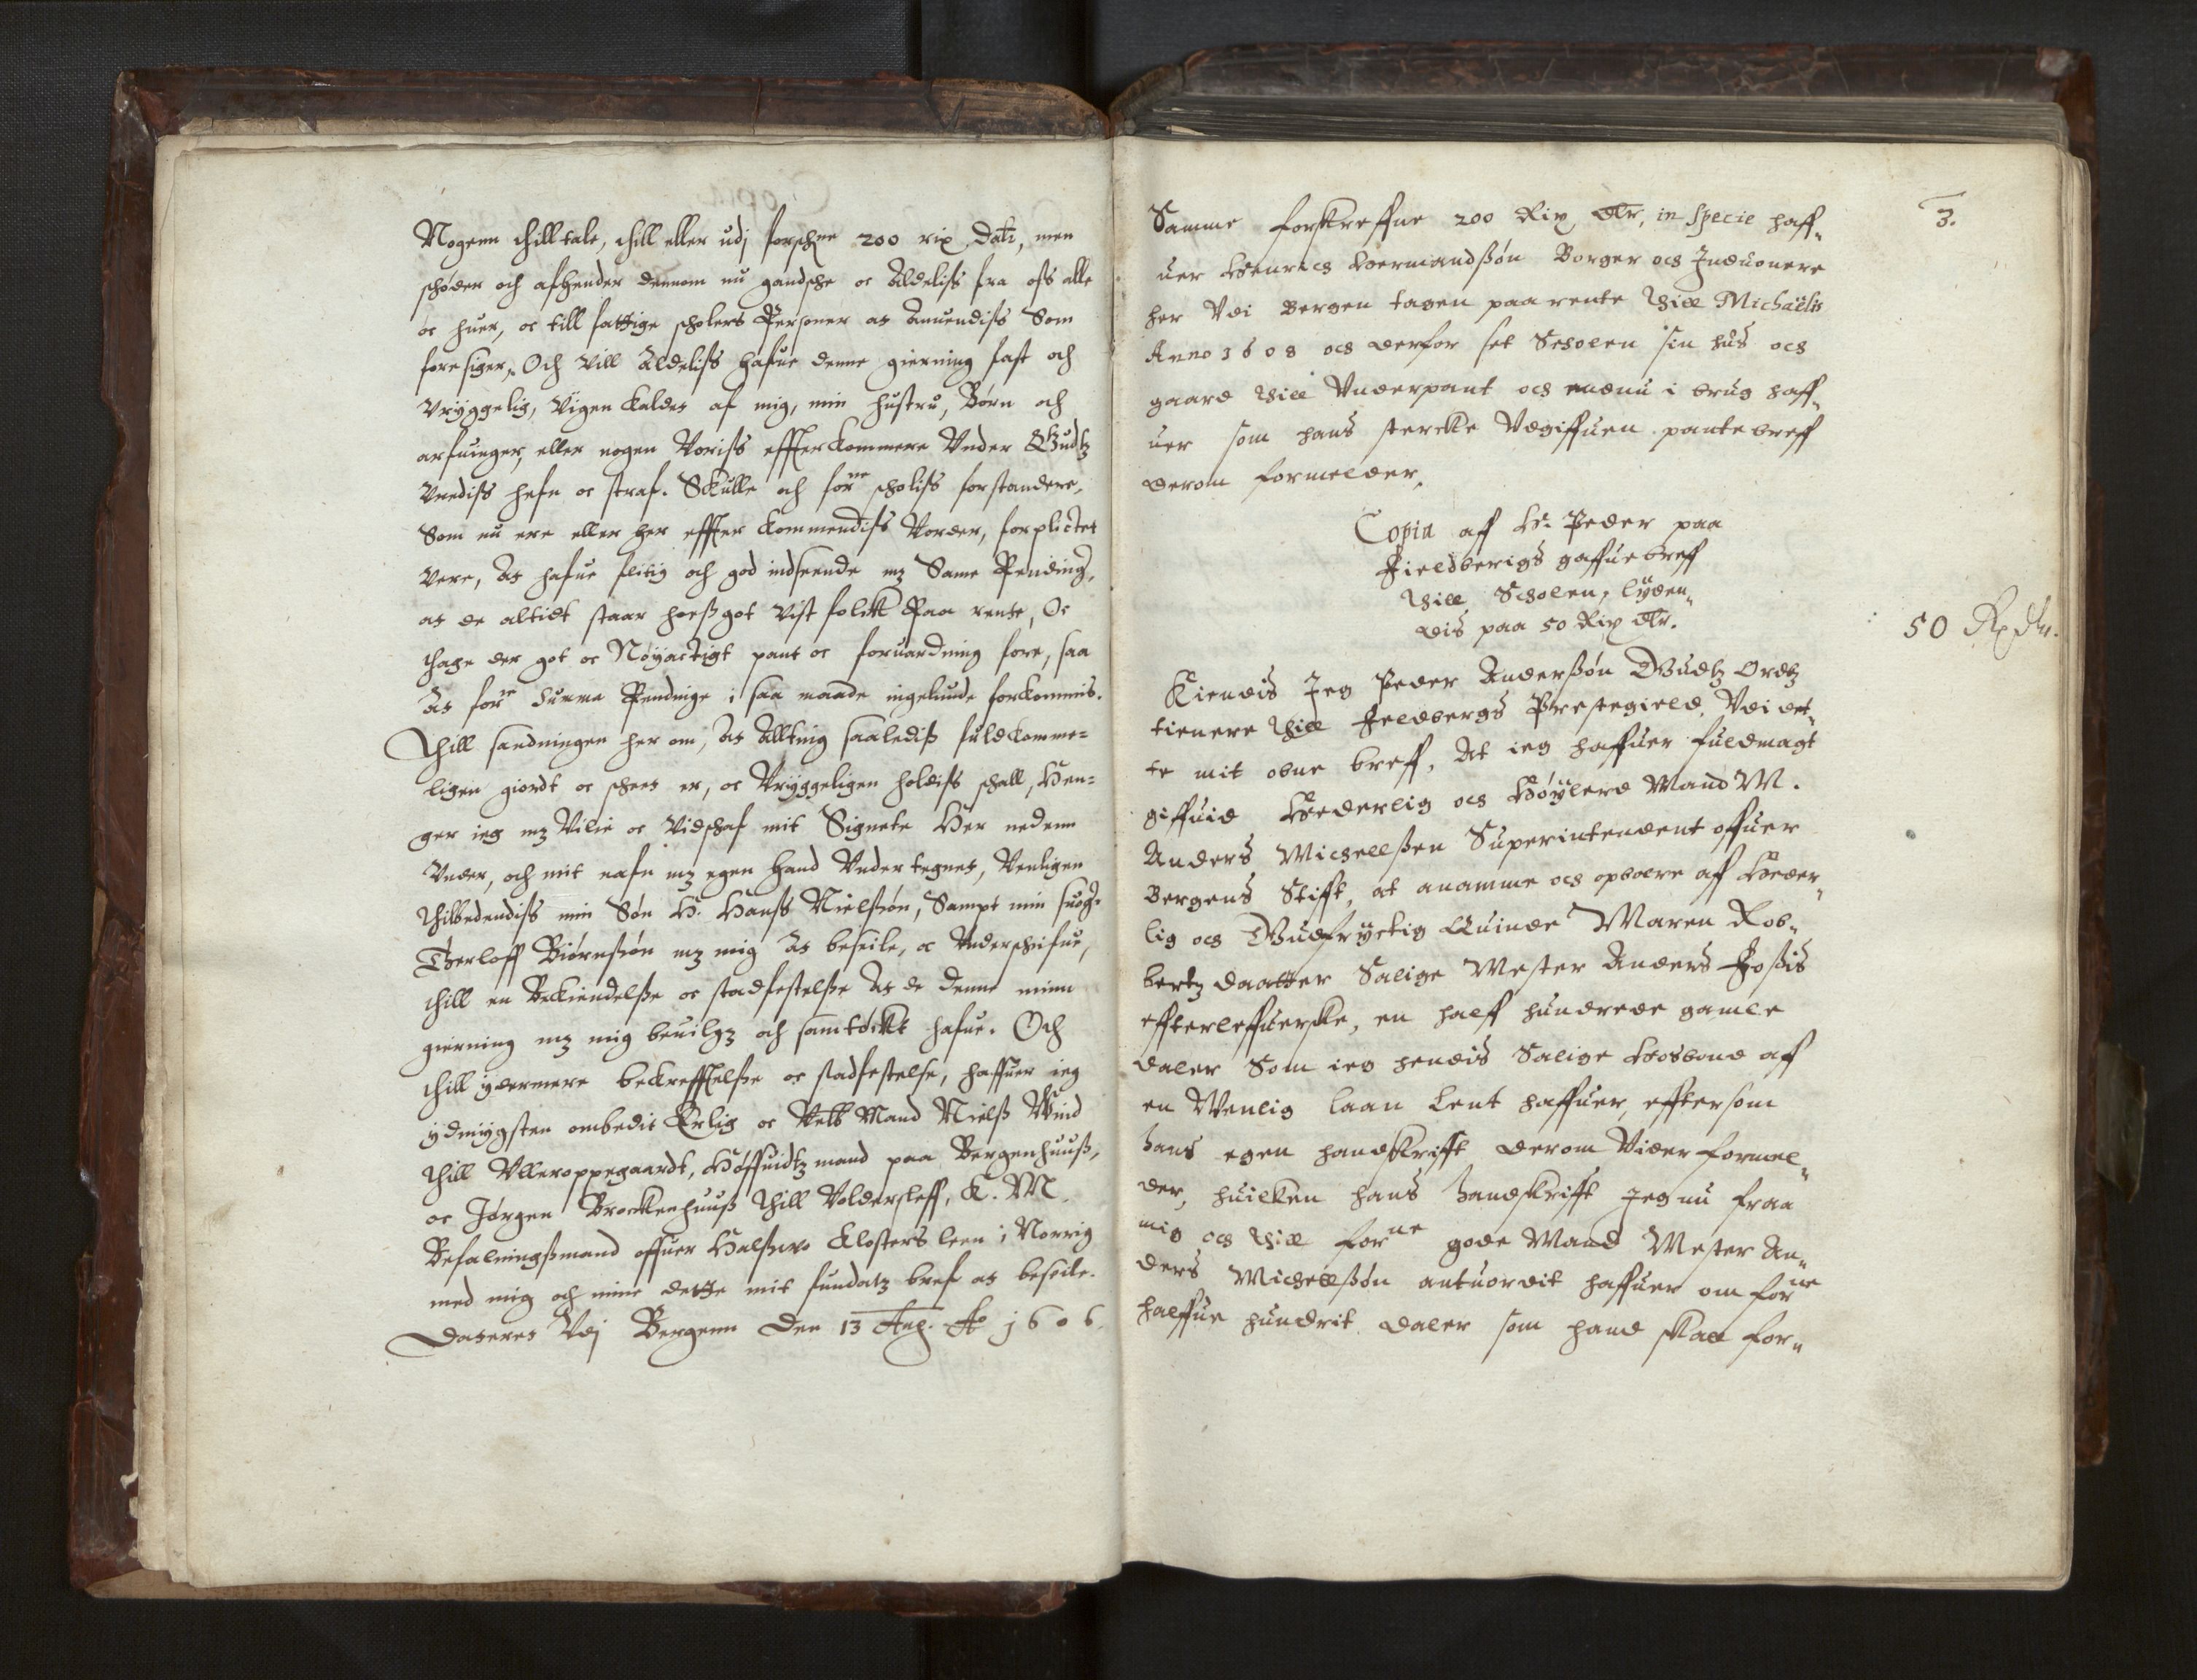 Nogenn thilltale, thill eller udj forschne 200 rix dalr, men
schøder och afhender dennom nu gandsche oc Aldeliss fra oss alle
oc huer, oc till fattige scholers Personer at Anuendiss Som
foresiger. Och vill Aldeliss hafue denne gierning fast och
Vryggelig, Vigen kaldet af mig, min hustru, Børn och
arfuinger, eller nogen Voriss effterkommere Vnder Gudtz
Vrediss hefn oc straf. Skulle och forne scholiss forstandere,
Som nu ere eller her effter kommendiss Vorder, forplictet
Vere, At hafue flitig och god indseende mz Same Pending,
at de altidt staar hoess got vist folck Paa rente, Oc
thage der got oc Nøyactigt pant oc foruardning fore, saa
At forne Summa Pendinge i saa maade ingelunde forkommis.
Thill sandningen her om, At Allting saalediss fuldkomme-
ligen giordt oc scheet er, oc Vryggeligen holdiss schall, Hen-
ger ieg mz Vilie oc Vidschaf mit Signete Her nedenn
Vnder, och mit nafn mz egen Hand Vnder tegnet, Venligen
thilbedendiss min Søn H. Hanss Nielssøn, Sampt min suog.
Therloff Biørnssøn mz mig At beseile, oc Vnderschrifue,
thill en Bekiendelsse oc stadfestelsse At de denne minn
gierning mz mig beuilgz och samtøckt hafue. Och
thill ydermere bekrefftelsse oc stadfestelse, haffuer ieg
ydmygsten ombedit Erlig oc Velb Mand Nielss Wind
thill Vlleroppegaardt, Høffuidtzmand paa Bergenhuuss,
oc Jørgen Brockenhuuss thill Volderslef, K. M.
Befalningssmand offuer Halssnø Klosters leen i Norrig
med mig och mine dette mit fundatz bref at beseile.
Dateret Vdj Bergenn Den 13 Aug. Ao 1606.
3.
Samme forskreffne 200 Rix Dlr, in specie haff-
uer Henrich Hermandssøn Borger och Induonere
her Vdi Bergen tagen paa rente thill Michaëlis
Anno 1608 och derfor set Scholen sin hus och
gaard thill Vnderpant och endnu i brug haff-
uer som hans stercke Vdgiffuen pantebreff
derom formelder.
Copia aff H. Peder paa
Fieldberigs gaffuebreff
thill Scholen, lyden-
dis paa 50 Rix Dlr.
50 Rx Dlr.
Kiendis Jeg Peder Anderssøn Gudtz Ordtz
tienere thill Feldbergs Prestegield, Vdi det-
te mit obne breff, At ieg haffuer fuldmagt
giffuid Hederlig och Høylerd Mand M.
Anders Michellssen Superintendent offuer
Bergens Stifft, at anamme och opbære aff Heder-
lig och Gudfryctig Quinde Maren Rob-
bertz daatter Salige Mester Anders Fossis
effterleffuerske, en halff hundrede gamle
daler Som ieg hendis Salige Hosbond aff
en Wenlig laan lent haffuer, efftersom
hans egen handskrifft derom Vider formel-
der, huilken hans handskrifft Jeg nu fraa
mig och thill forne gode Mand Mester An-
ders Michellssøn antuordit haffuer om forne
halffue hundrit daler som hand skall for-